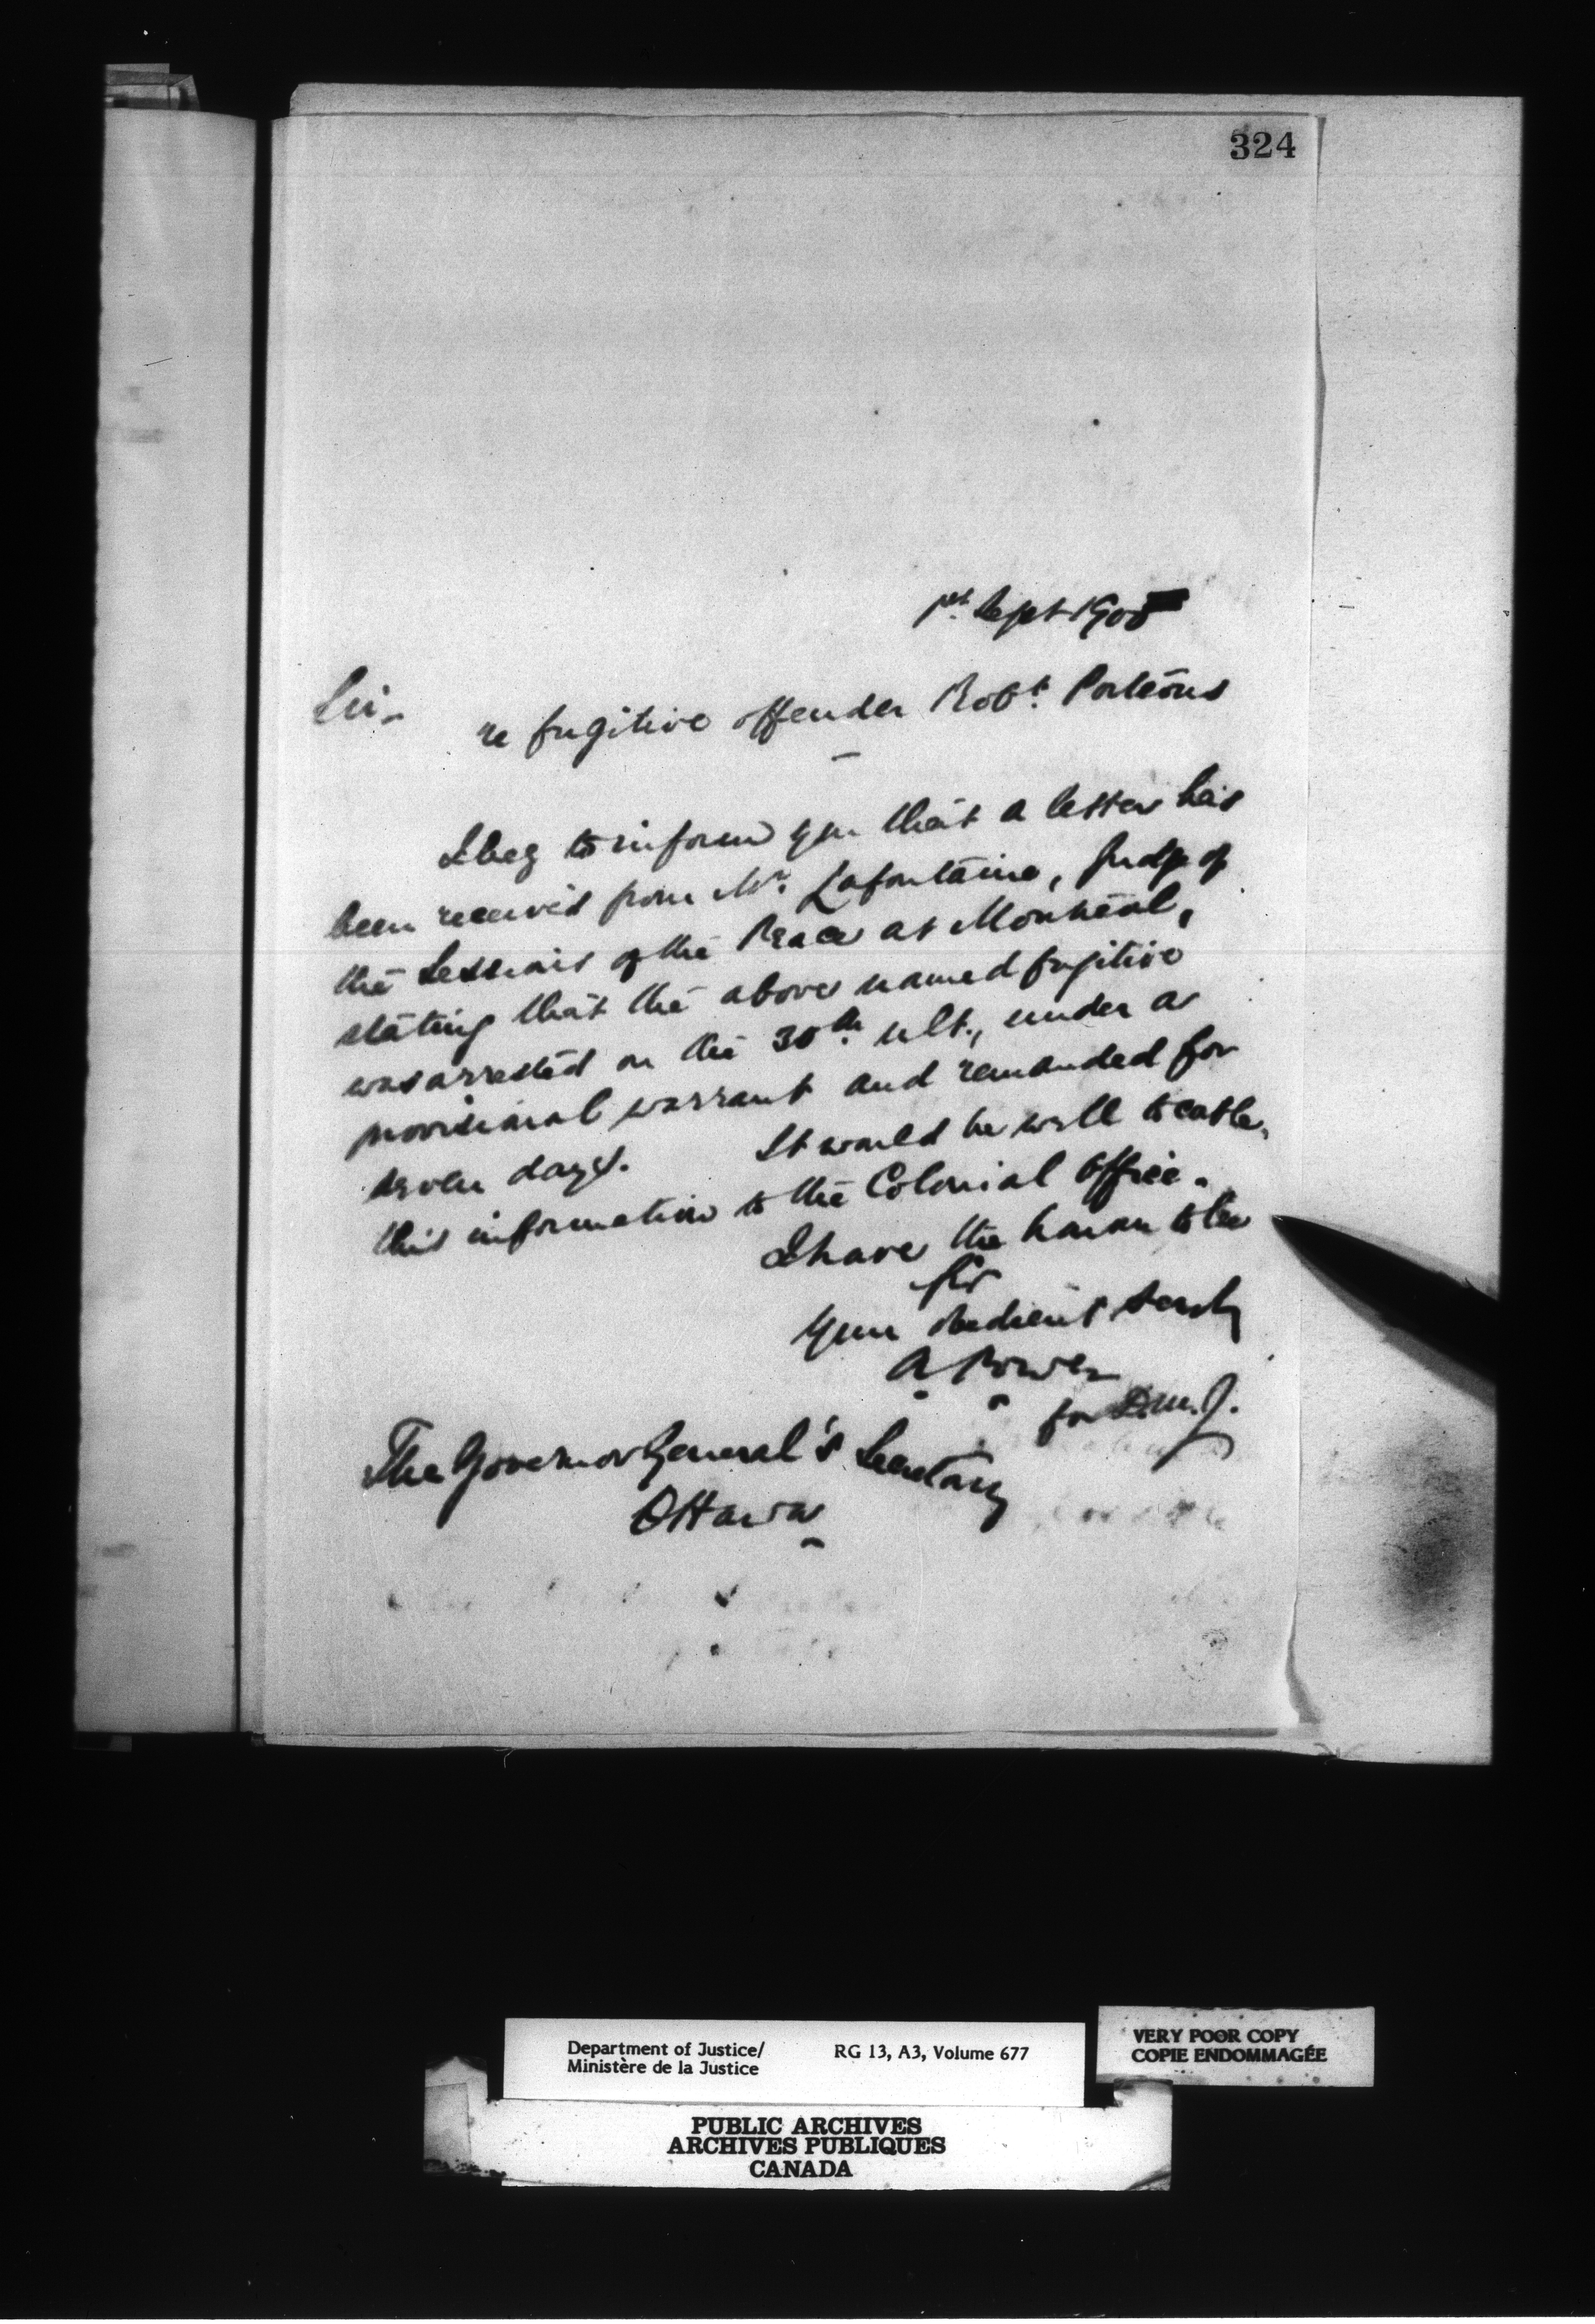 324
1st. Sept 1905
Sir,
re fugitive offender Robt. Porteous
I beg to inform you that a letter has
been received from Mr. Lafontaine, Judge of
the Sessions of the Peace at Montreal,
stating that the above named fugitive
was arrested on the 30th. ult., under a
provisional warrant and remanded for
seven days. It would be well to cable
this information to the Colonial Office.
I have the honour to be
Sir
Your obedient servt
A Power
for D.M.J.
The Governor General's Secretary
Ottawa
Department of Justice/ RG 13, A3, Volume 677
Ministère de la Justice
VERY POOR COPY
COPIE ENDOMMAGÉE
PUBLIC ARCHIVES
ARCHIVES PUBLIQUES
CANADA